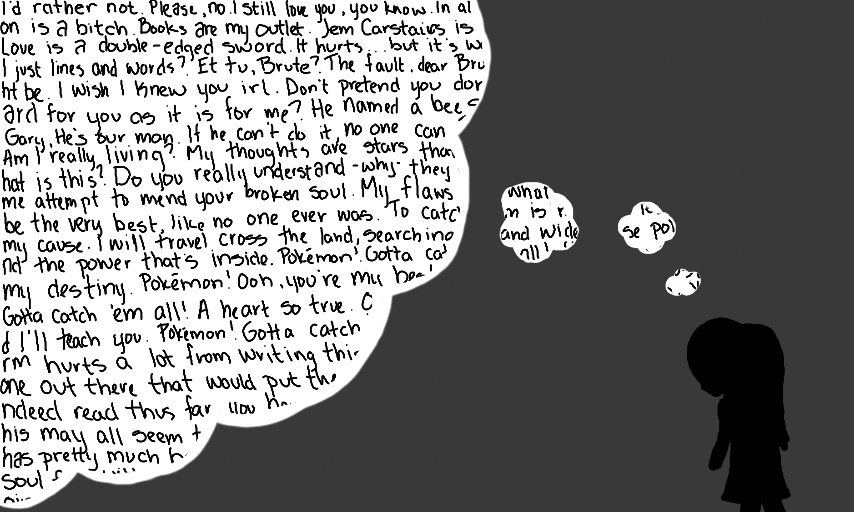 I'd rather not. Please, no. I still love you, you know. In al
on is a bitch. Books are my outlet. Jem Carstairs is
Love is a double-edged sword. It hurts... but it's w
I just lines and words? Et tu, Brute? The fault, dear Bru
ht be. I wish I knew you irl. Don't pretend you don
ard for you as it is for me? He named a bee
Gary. He's our man. If he can't do it, no one can
Am I really living? My thoughts are stars than
hat is this? Do you really understand -why- they
me attempt to mend your broken soul. My flaws
be the very best, like no one ever was. To catc
my cause. I will travel cross the land, searching
nd the power that's inside. Pokémon! Gotta ca
my destiny. Pokémon! Ooh, you're my be
Gotta catch 'em all! A heart so true.
d I'll teach you. Pokémon! Gotta catch
rm hurts a lot from writing thi
one out there that would put the
ndeed read thus far you h
his may all seem t
has pretty much
soul
what
m is r
and wide
all!
se pol